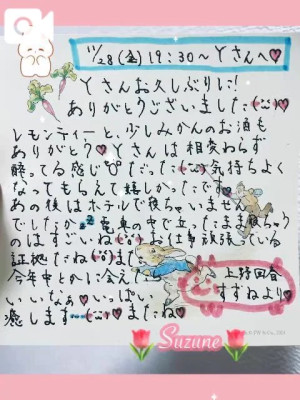 11/28(金)19:30〜Yさんへ♡
Yさんお久しぶりに!
ありがとうございました
レモンティーと、少しみかんのお酒も
ありがとう♡Yさんは相変わらず
酔ってる感じだった 気持ちよく
なってもらえて嬉しかったです
あの後はホテルで寝ちゃいません
でしたか 電車の中で立ったまま寝ちゃう
のはすごいね お仕事頑張っている
証拠だね また
今年中とかに会えたら
いいなぁ いっぱい
癒します またね♡
上野回春
すずねより♡
Suzune